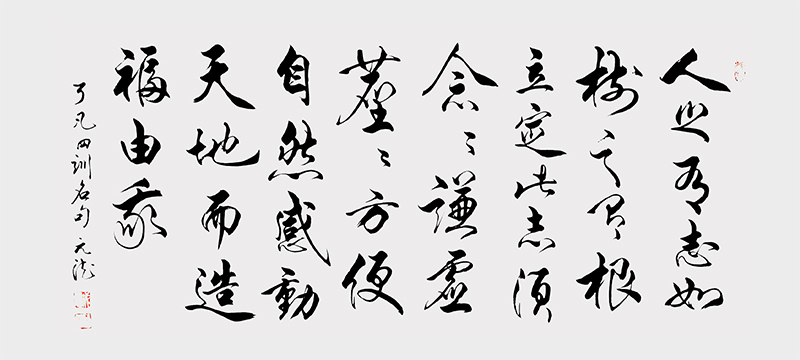 人之有志如
樹之有根
立定此志須
念〻謙虛
塵〻方便
自然感動
天地而造
福由我
了凡四訓名句